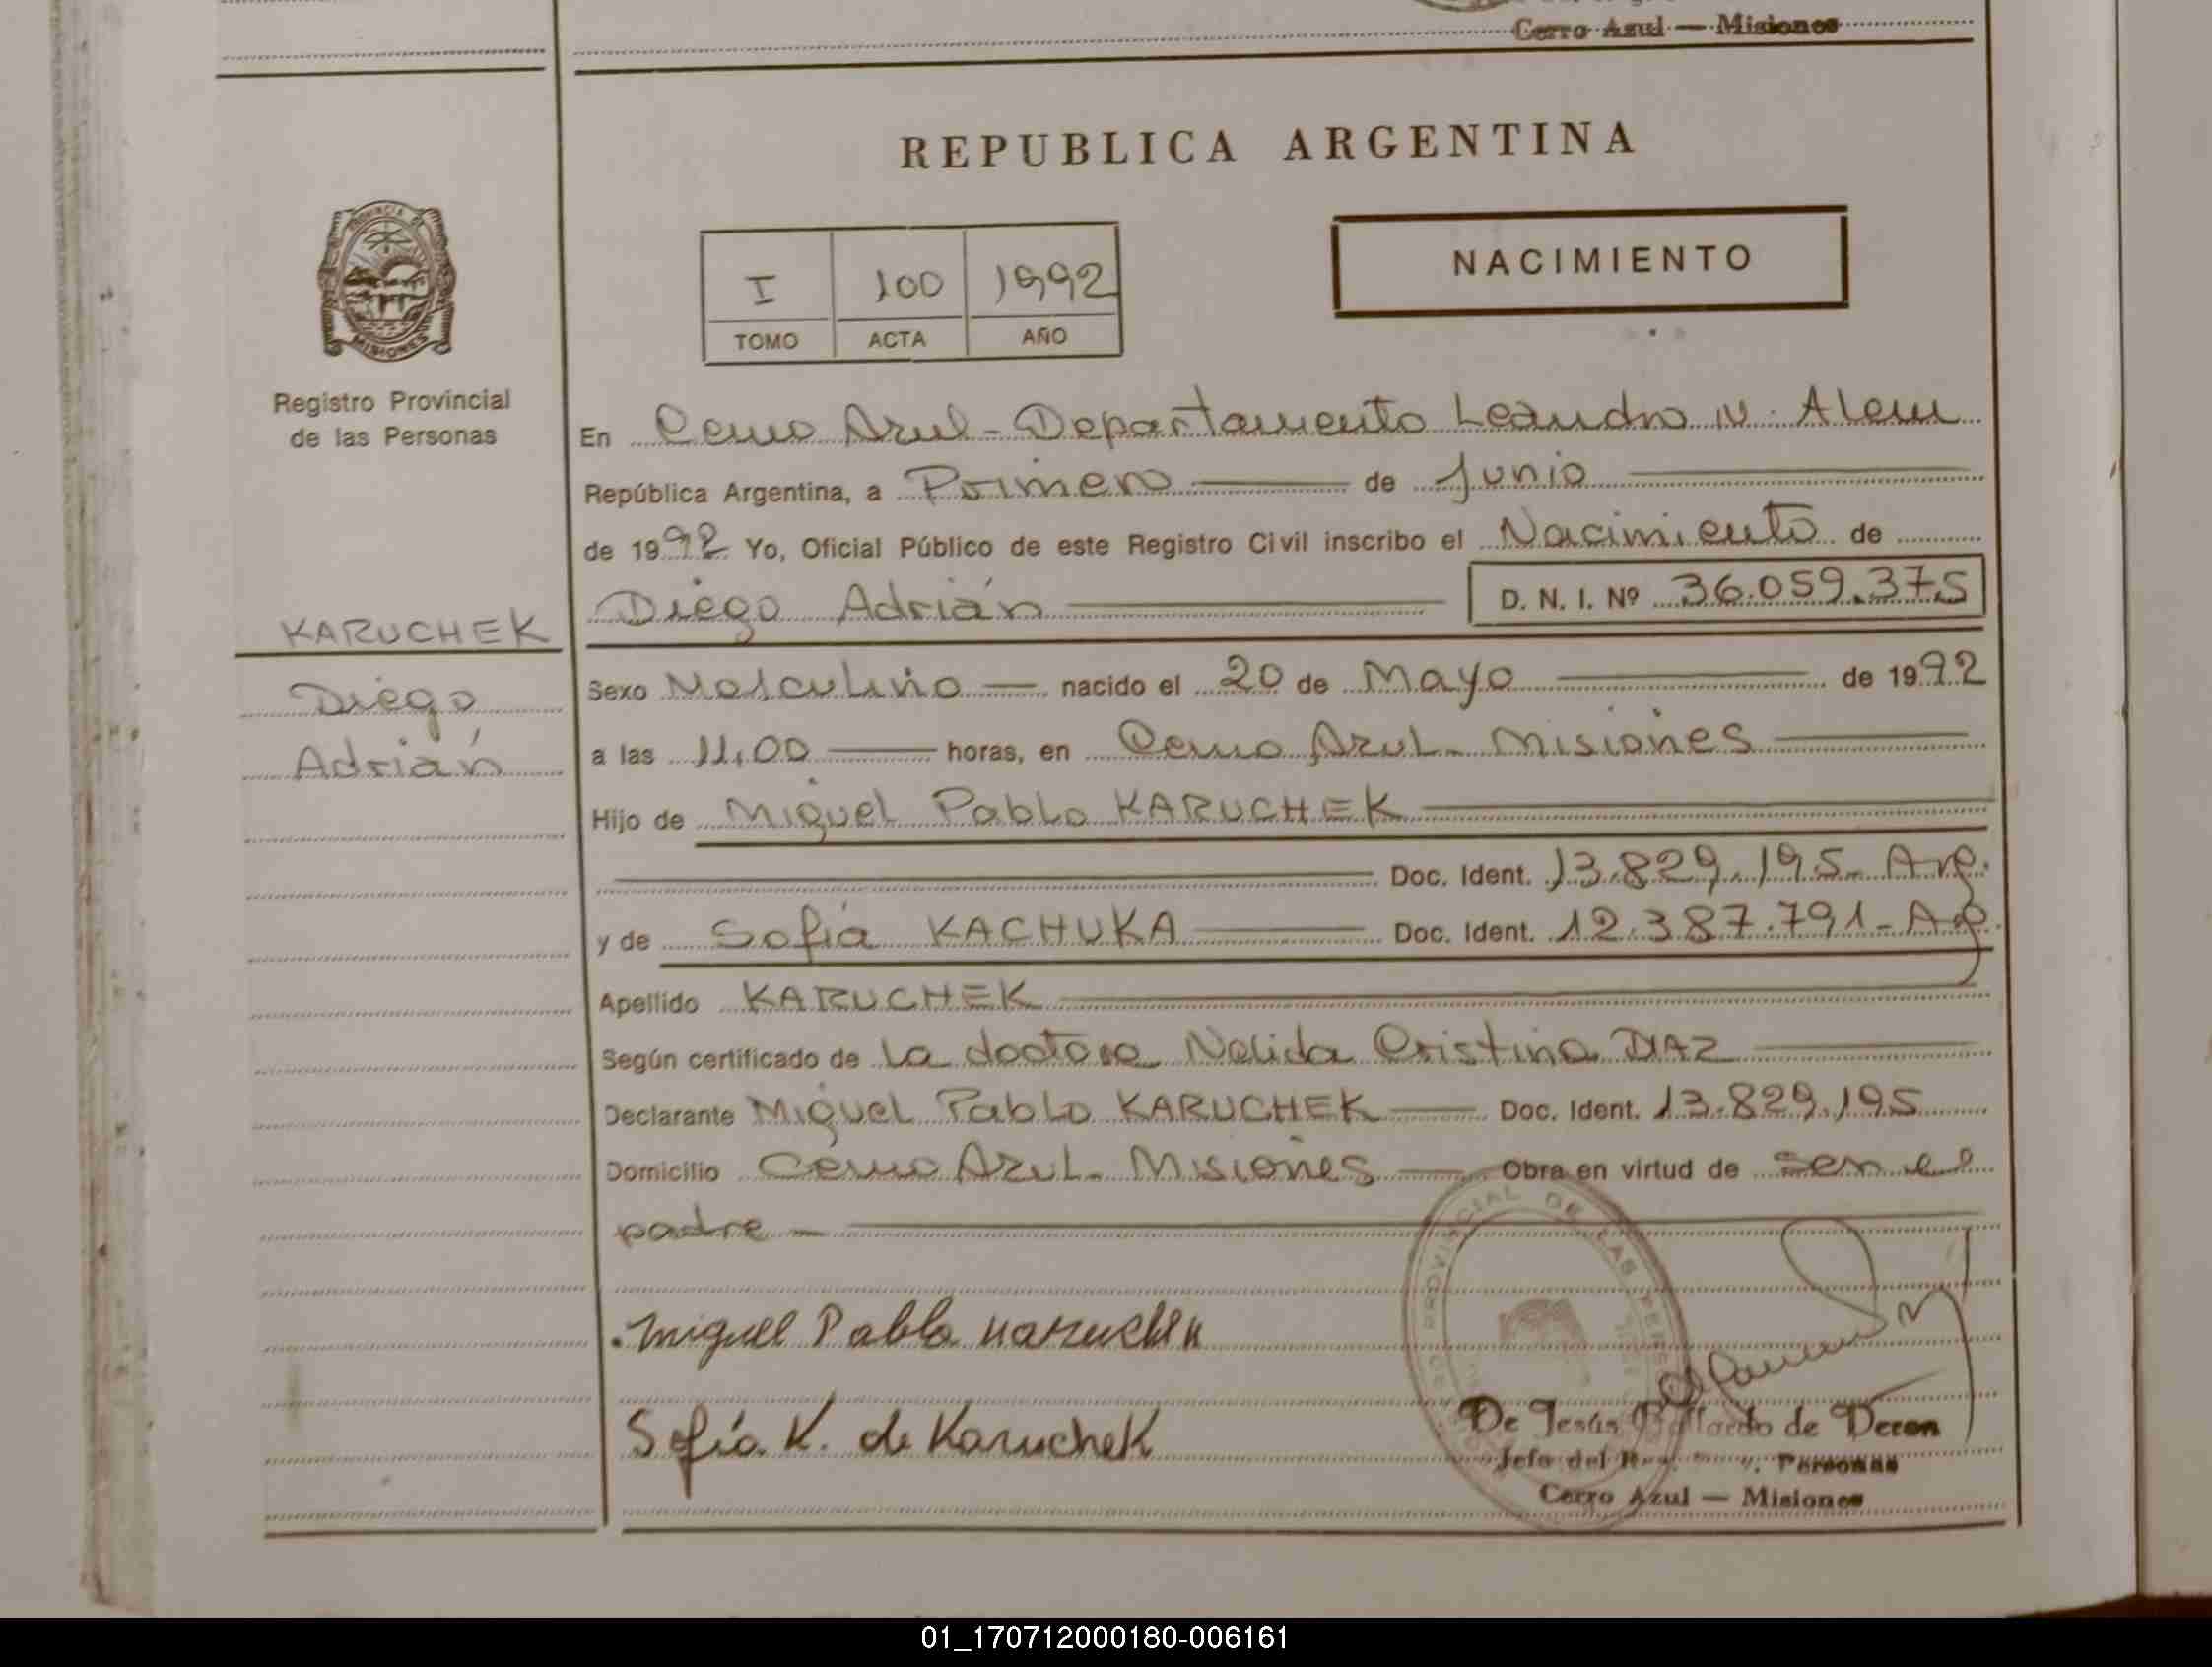 Cerro Azul — Misiones
REPUBLICA ARGENTINA
NACIMIENTO
I 100 1992
TOMO ACTA AÑO
PROVINCIA DE
MISIONES
Registro Provincial
de las Personas
KARUCHEK
Diego
Adrián
En Cerro Azul - Departamento Leandro N. Alem
República Argentina, a Primero de Junio
de 1992 Yo, Oficial Público de este Registro Civil inscribo el Nacimiento de
Diego Adrián D. N. I. Nº 36.059.375
Sexo Masculino nacido el 20 de Mayo de 1992
a las 11,00 horas, en Cerro Azul - Misiones
Hijo de Miguel Pablo KARUCHEK
Doc. Ident. 13.829.195 - Arg.
y de Sofía KACHUKA Doc. Ident. 12.387.791 - Arg.
Apellido KARUCHEK
Según certificado de La doctora Nelida Cristina DIAZ
Declarante Miguel Pablo KARUCHEK Doc. Ident. 13.829.195
Domicilio Cerro Azul - Misiones Obra en virtud de ser el
padre
Miguel Pablo Karuchek
Sofía K. de Karuchek
De Jesús de Deron
Jefe del Personas
Cerro Azul — Misiones
01_170712000180-006161